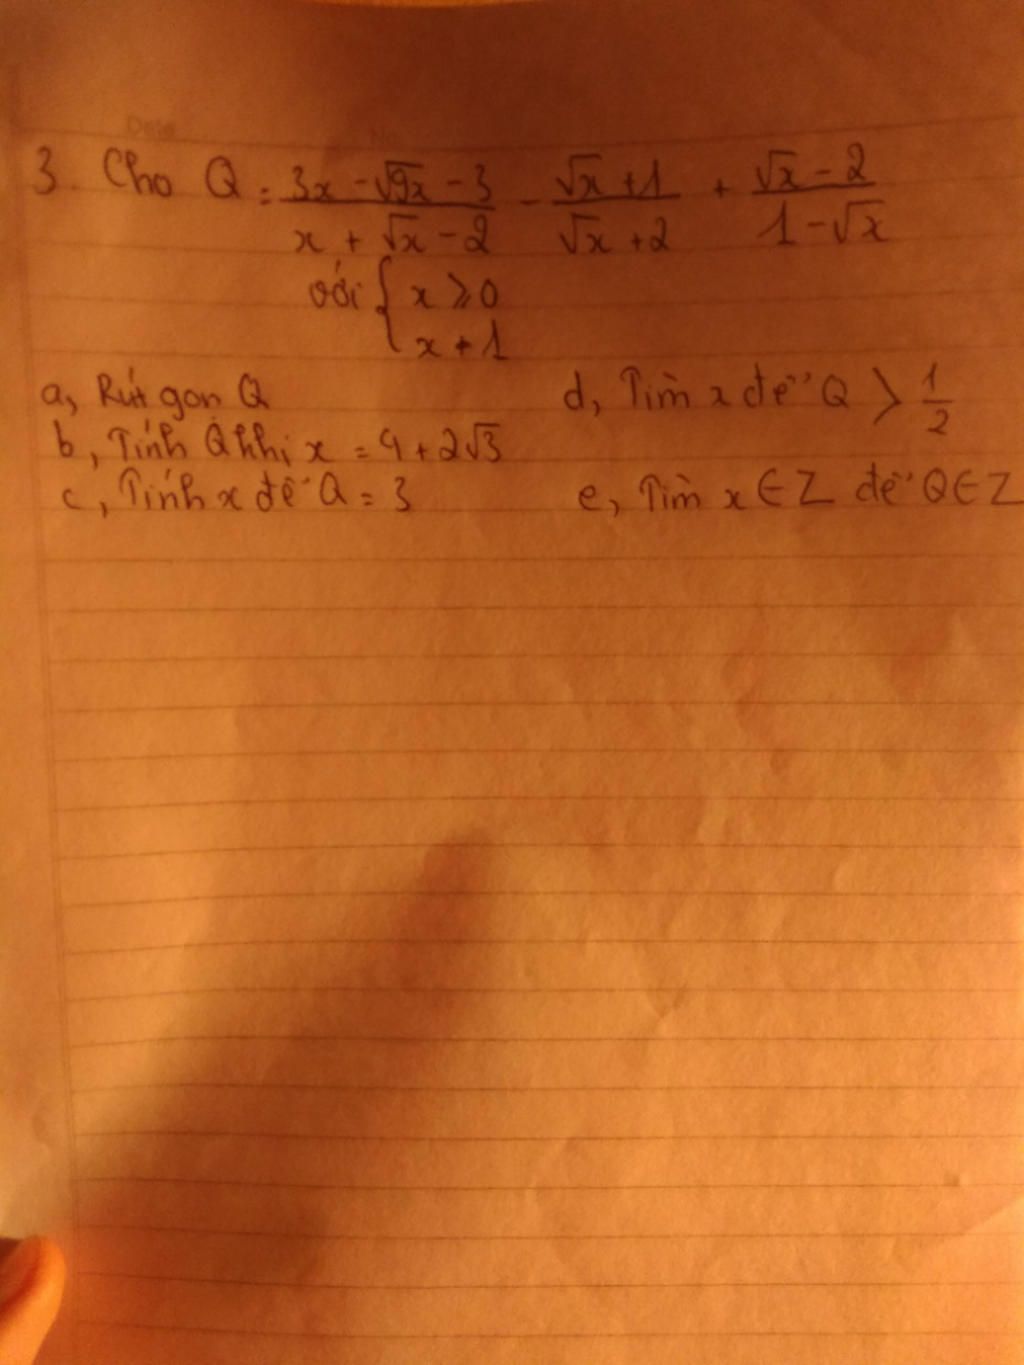 3. Cho Q = \frac{3x - \sqrt{9x} - 3}{x + \sqrt{x} - 2} - \frac{\sqrt{x} + 1}{\sqrt{x} + 2} + \frac{\sqrt{x} - 2}{1 - \sqrt{x}}
với { x ⩾ 0
x ≠ 1
a, Rút gọn Q
b, Tính Q khi x = 4 + 2√3
c, Tính x để Q = 3
d, Tìm x để Q > \frac{1}{2}
e, Tìm x ∈ Z để Q ∈ Z